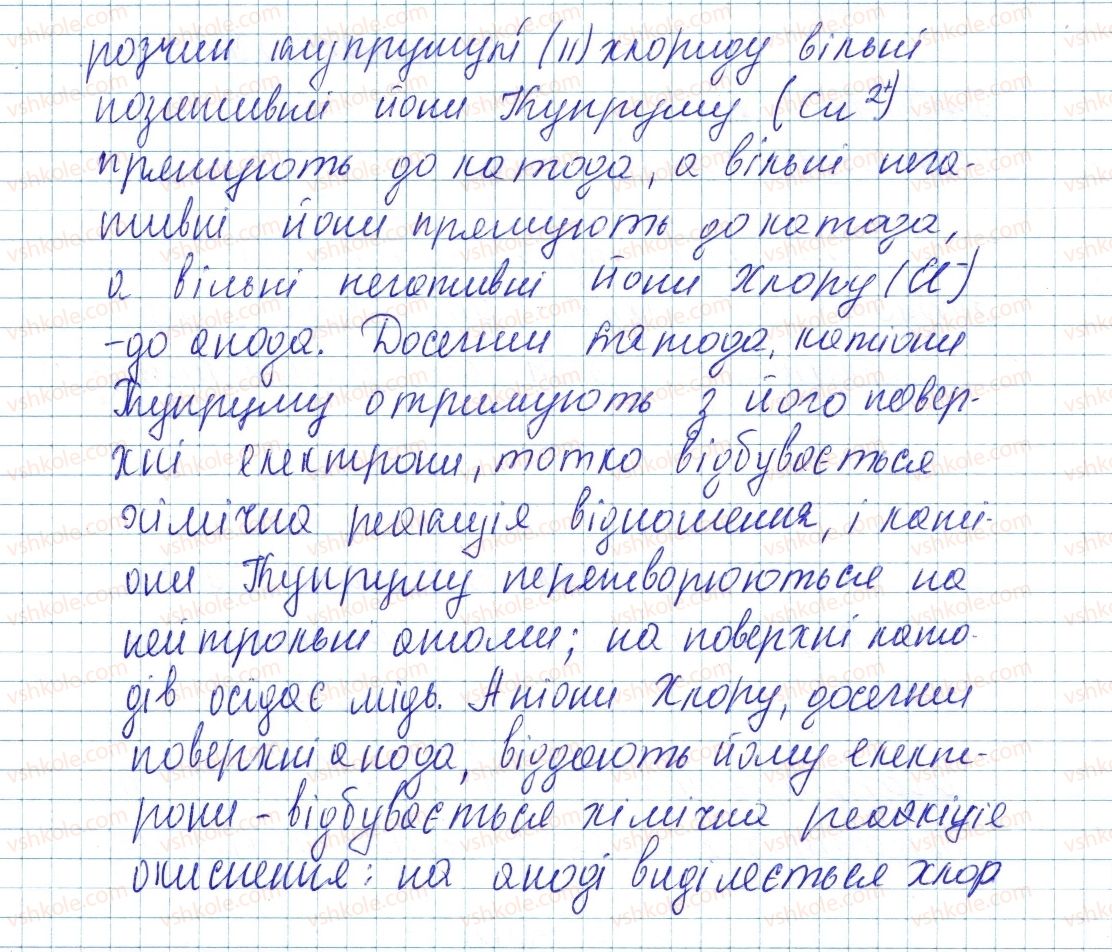 розчин купруму (II) хлориду вільні
позитивні йони Купруму (Cu²⁺)
прямують до катода, а вільні нега-
тивні йони прямують до катода,
а вільні негативні йони Хлору (Cl⁻)
-до анода. Досягши катода, катіони
Купруму отримують з його повер-
хні електрони, тотко відбувається
хімічна реакція відношення, і каті-
они Купруму перетворюються на
нейтрольні атоми; на поверхні като-
дів осідає мідь. Аніони Хлору, досягши
поверхні анода, віддають йому елект-
рони - відбувається хімічна реаакіція
окиснення: на аноді виділяється хлор